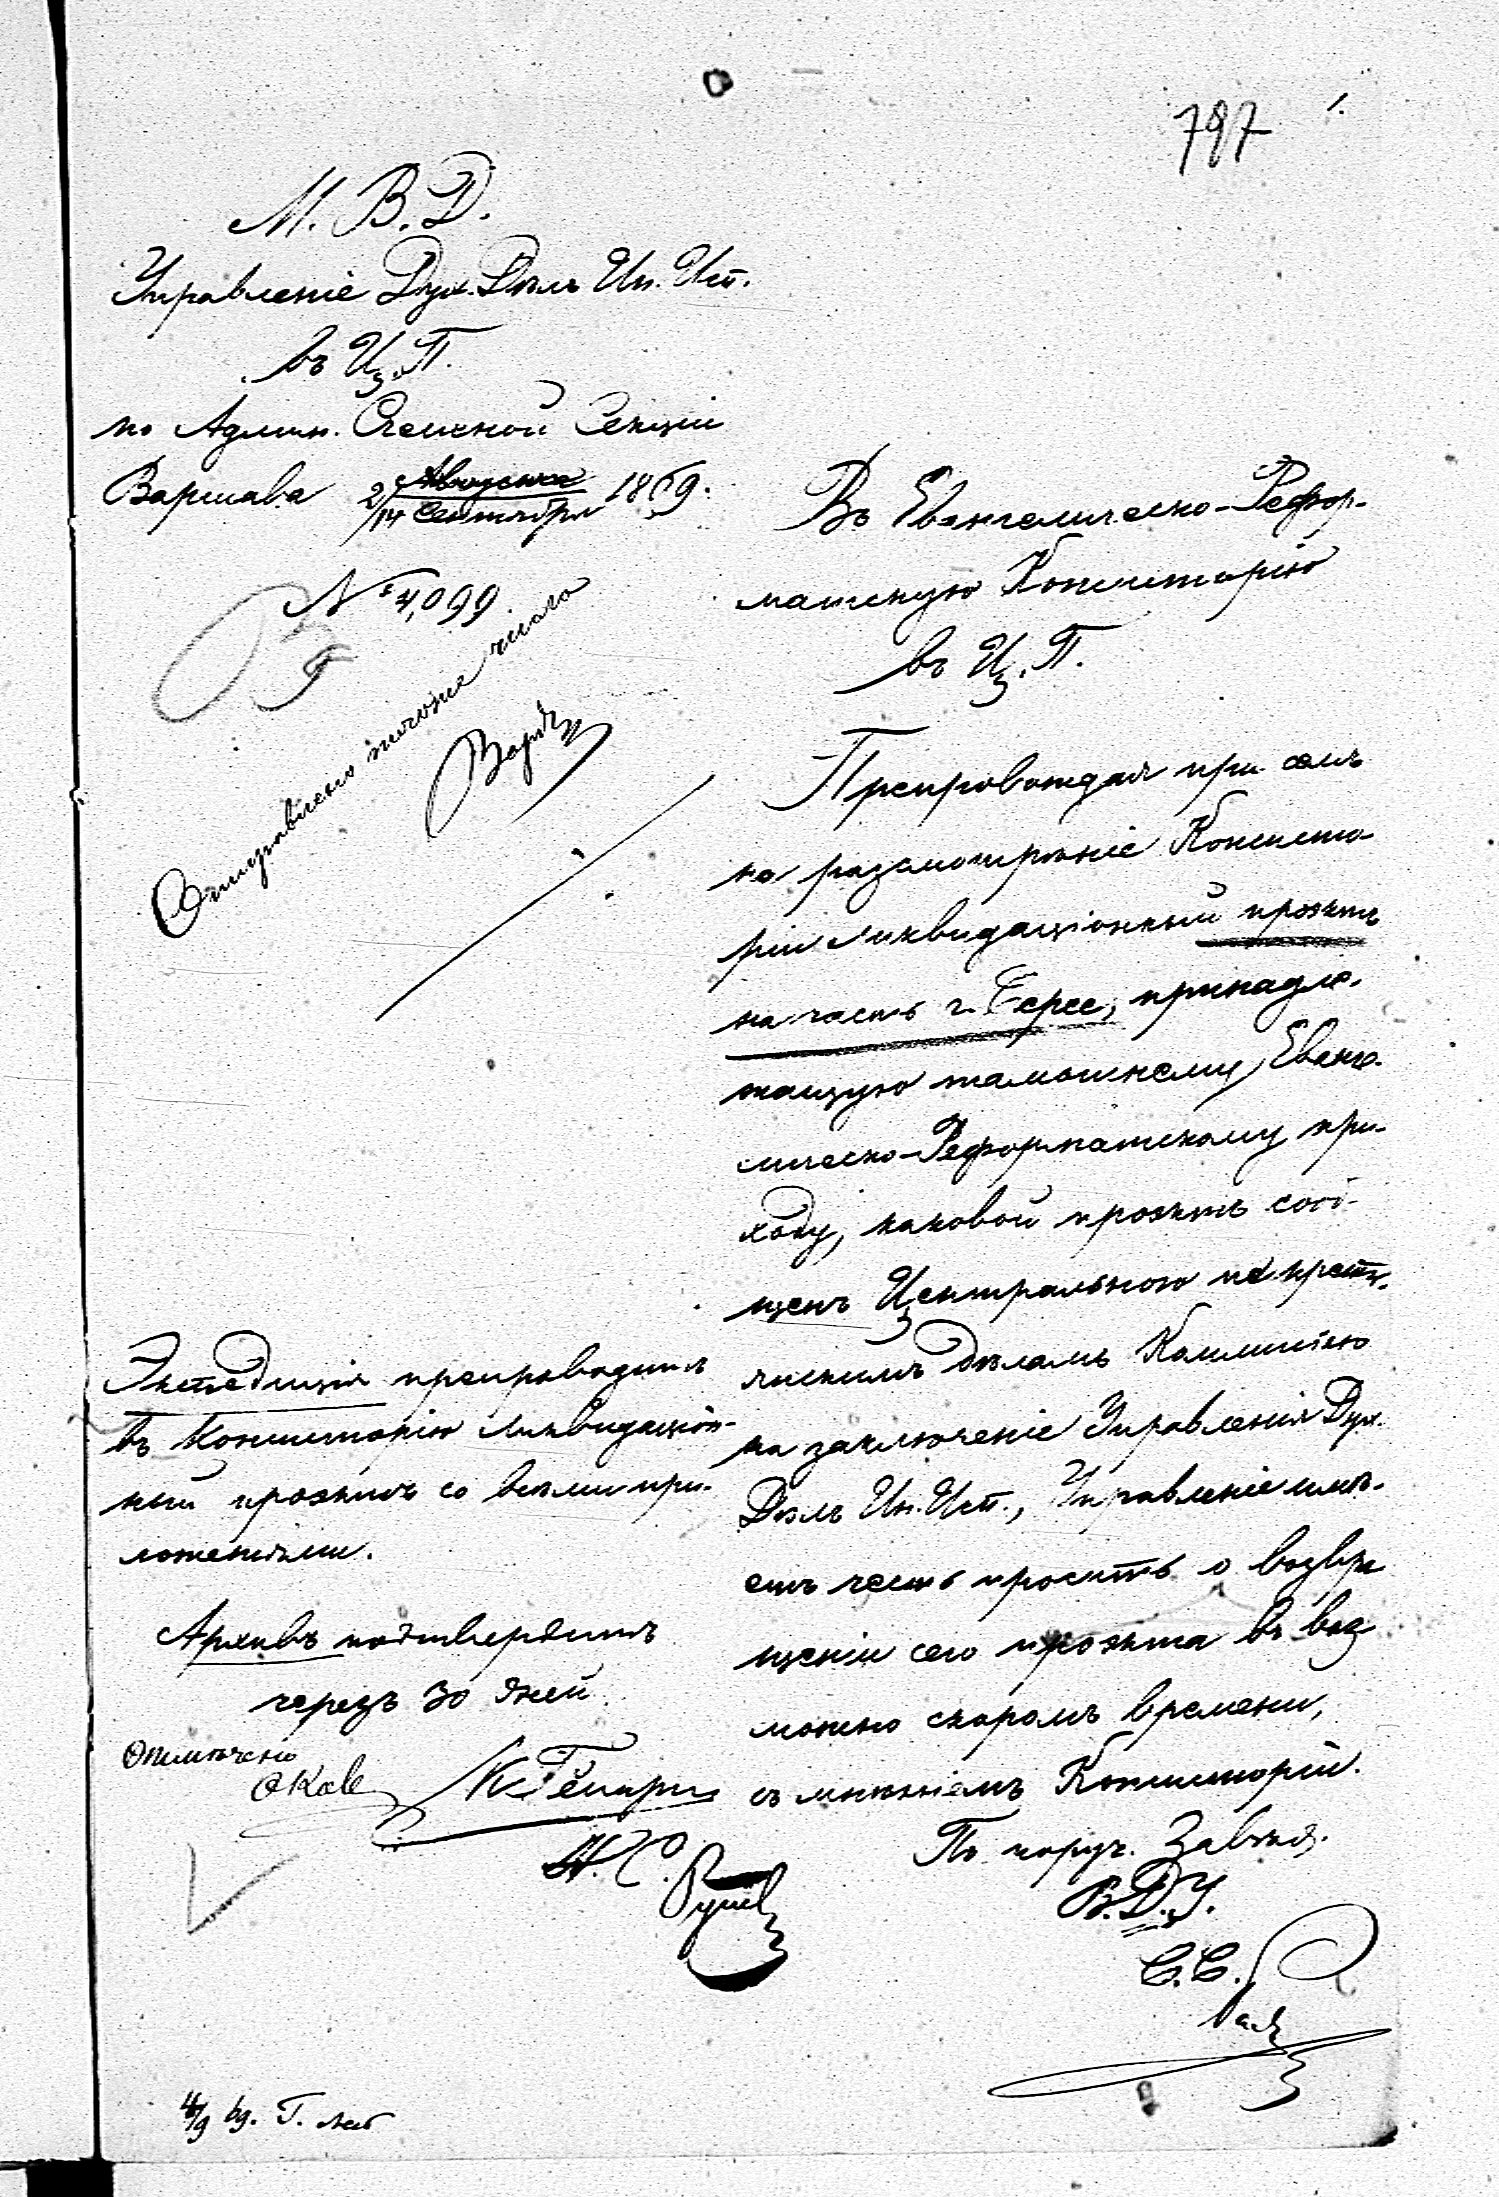 797
М. В. Д.
Управленіе Дух. Дѣлъ Ин. Исп.
въ Ц. П.
по Админ. Счетной Секціи
Варшава 2/14 Августа Сентября 1869.
№ 4,099.
Отправлено того же числа
Въ Евангелическо-Рефор-
матскую Консисторію
въ Ц. П.
Препровождая при семъ
на разсмотрѣніе Консисто-
ріи ликвидаціонный проэктъ
на часть г. Серее, принадле-
жащую тамошнему Еванге-
лическо-Реформатскому при-
ходу, каковой проэктъ сооб-
щенъ Центральною по кресть-
янскимъ дѣламъ Коммисіею
на заключеніе Управленія Дух.
Дѣлъ Ин. Исп., Управленіе имѣ-
етъ честь просить о возвра
щеніи сего проэкта въ воз
можно скоромъ времени,
съ мнѣніемъ Консисторіи.
По поруч. Завѣд.
В. Д. У.
С. С.
Экспедиція препроводитъ
въ Консисторію ликвидаціон-
ный проэктъ со всѣми при-
ложеніями.
Архивъ подтвердитъ
черезъ 30 дней.
Отмѣчено
Н. С.